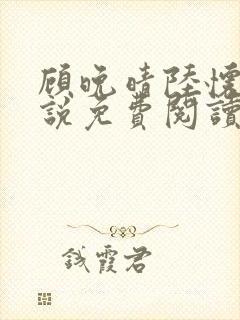 顾晚晴陸懷
說免費閱讀
錢霞君